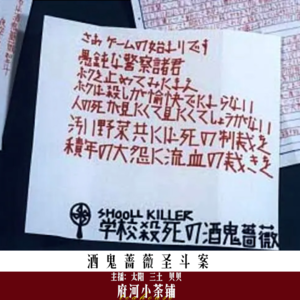 さあ ゲームの始まりです
愚鈍な警察諸君
ボクを止めてみたまえ
ボクは殺しが愉快でたまらない
人の死が見たくて見たくてしょうがない
汚い野菜共には死の制裁を
積年の大怨に流血の裁きを
SHOOLL KILLER
学校殺死の酒鬼薔薇
酒鬼蔷薇圣斗案
主播：太阳 三土 贝贝
府河小茶铺